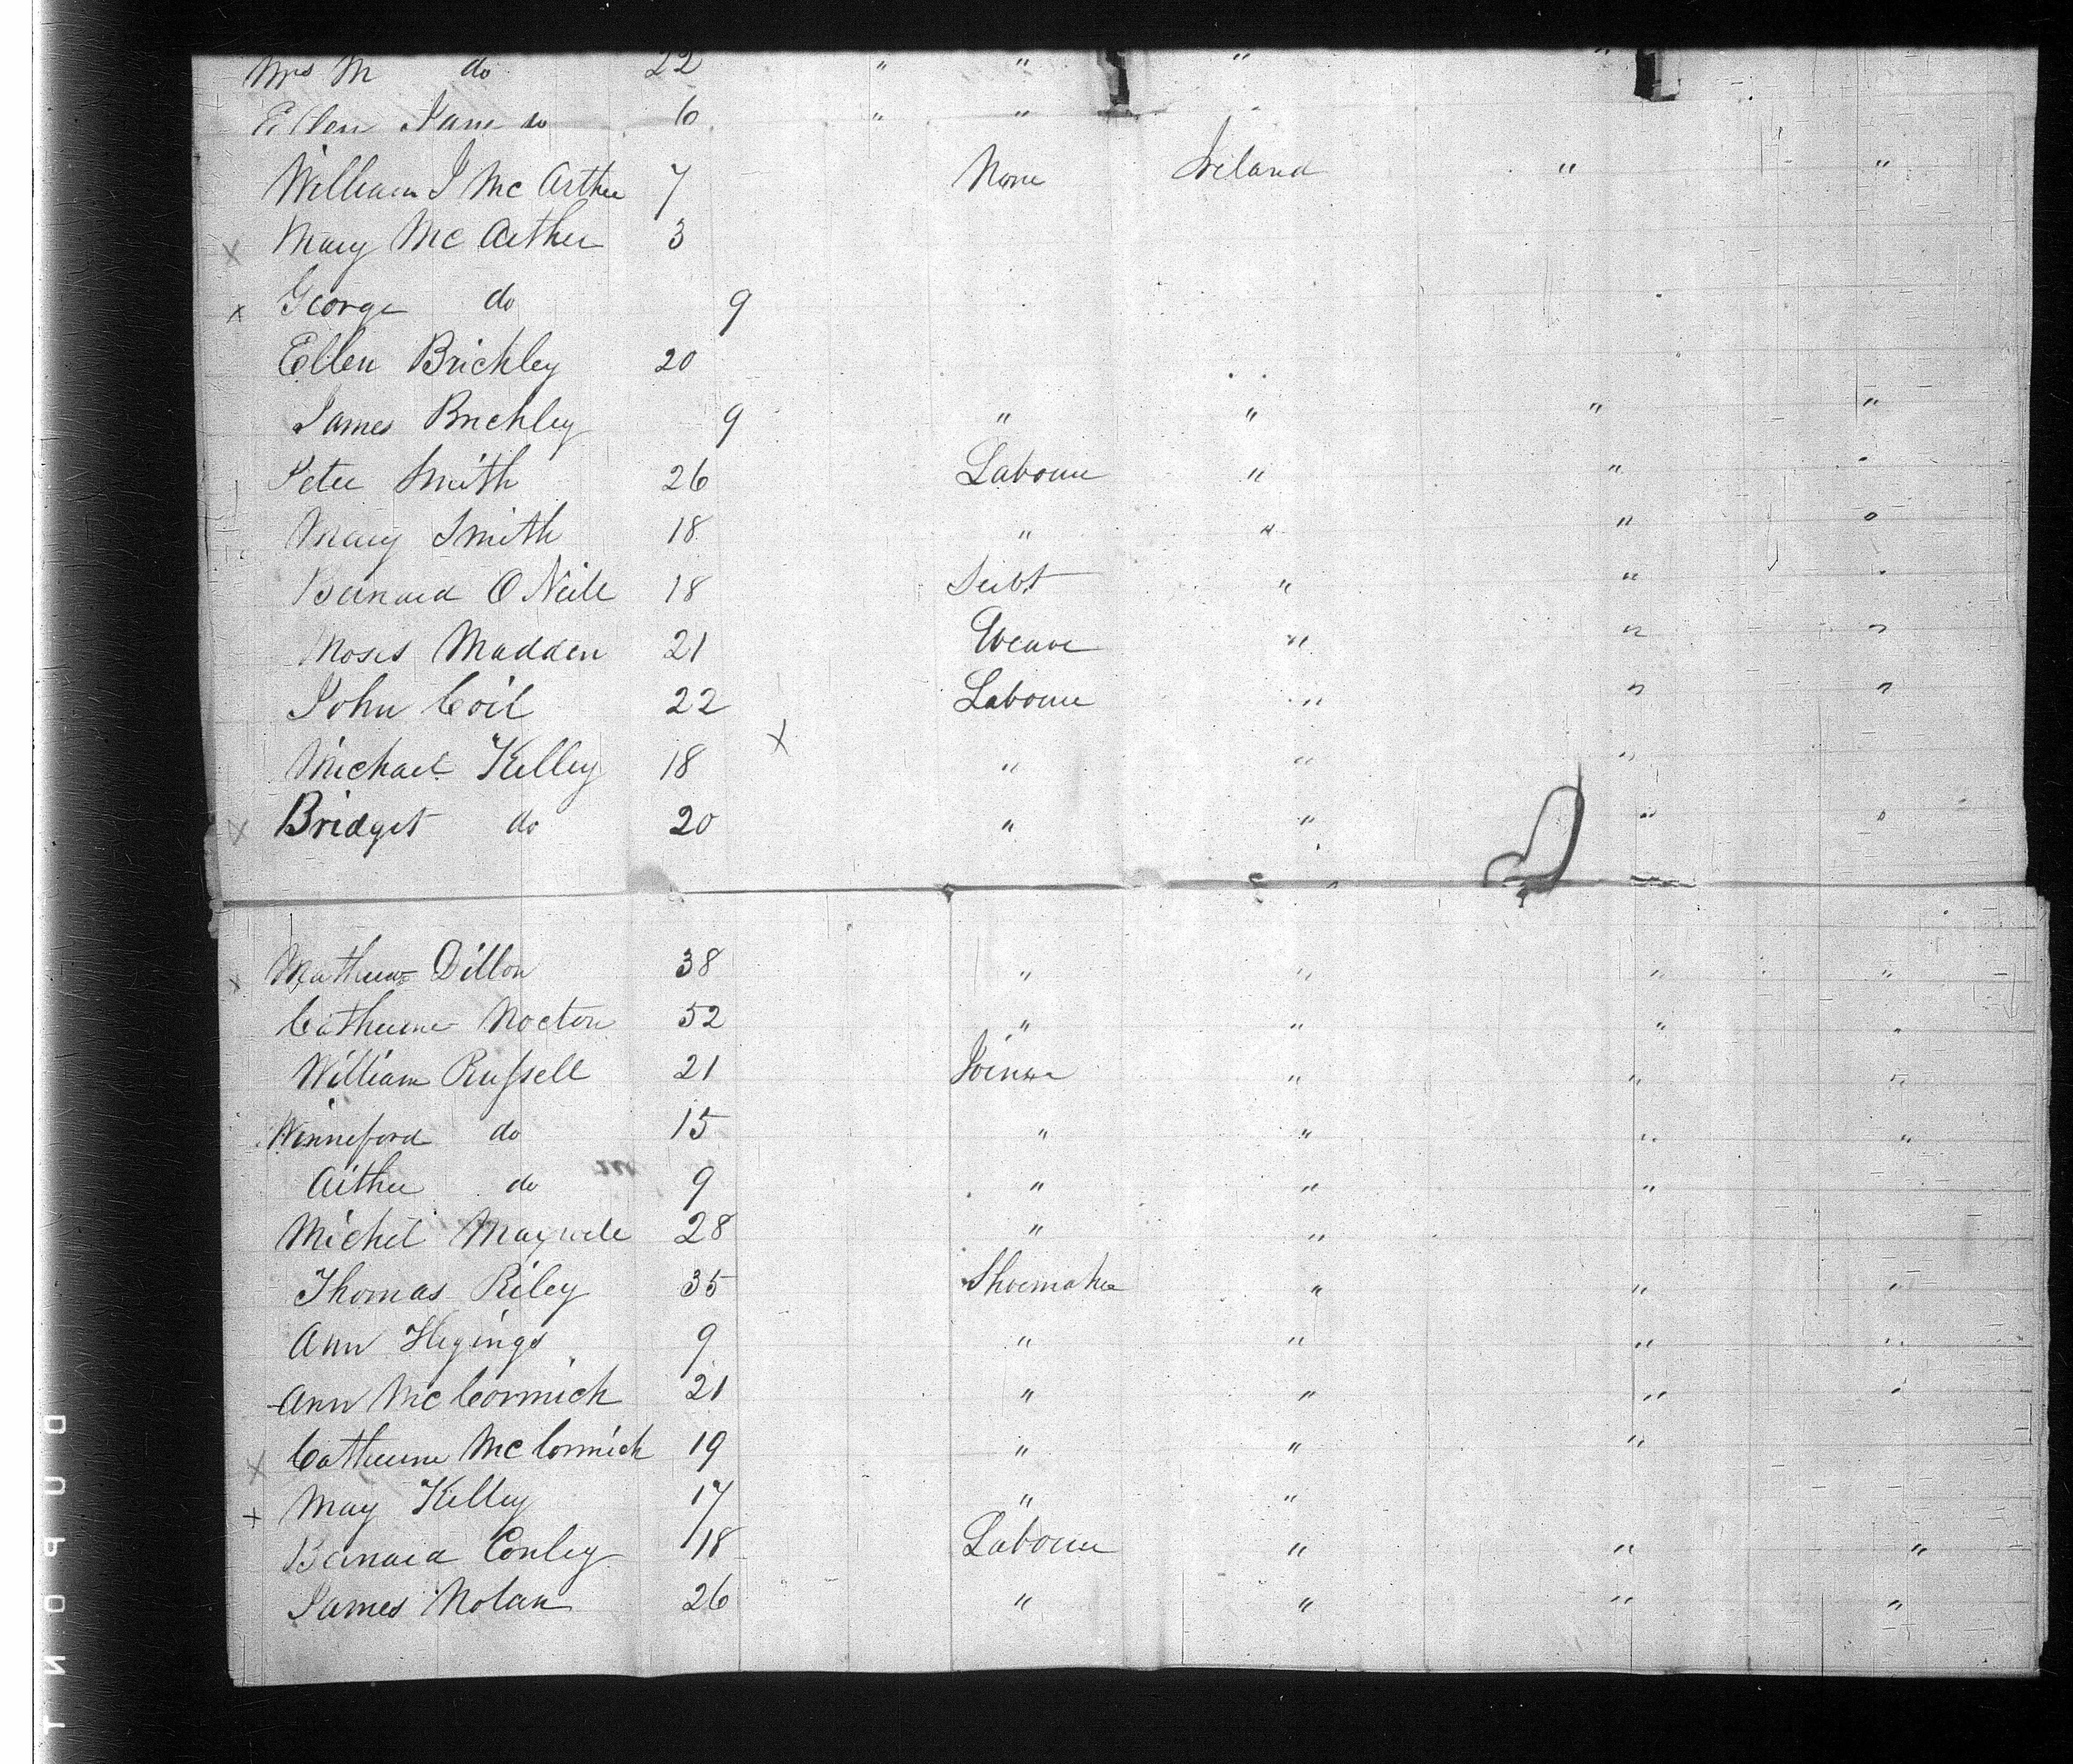 Mrs M do 22 " " "
Ellen Jane do 6 " "
William J Mc Arthur 7 None Ireland " "
x Mary Mc Arthur 3
x George do 9
Ellen Brickley 20
James Brickley 9 " " " "
Peter Smith 26 Labourer " "
Mary Smith 18 " " "
Bernard O Neill 18 " "
Moses Madden 21 Weaver " " "
John Coil 22 Labourer " " "
Michael Kelley 18 x " " "
x Bridget do 20 " " " "
x Mathew Dillon 38 " " " "
Catherine Nocton 52 " " " "
William Russell 21 Joiner " " "
Winneford do 15 " " " "
Arther do 9 " " "
Michel Maxwell 28 " "
Thomas Riley 35 Shoemaker " " "
Ann Higings 9 " " " "
Ann McCormick 21 " " " "
x Catherine McCormick 19 " " "
x May Kelley 17 " "
Bernard Conley 18 Labourer " " "
James Nolan 26 " " " "
DUPONT